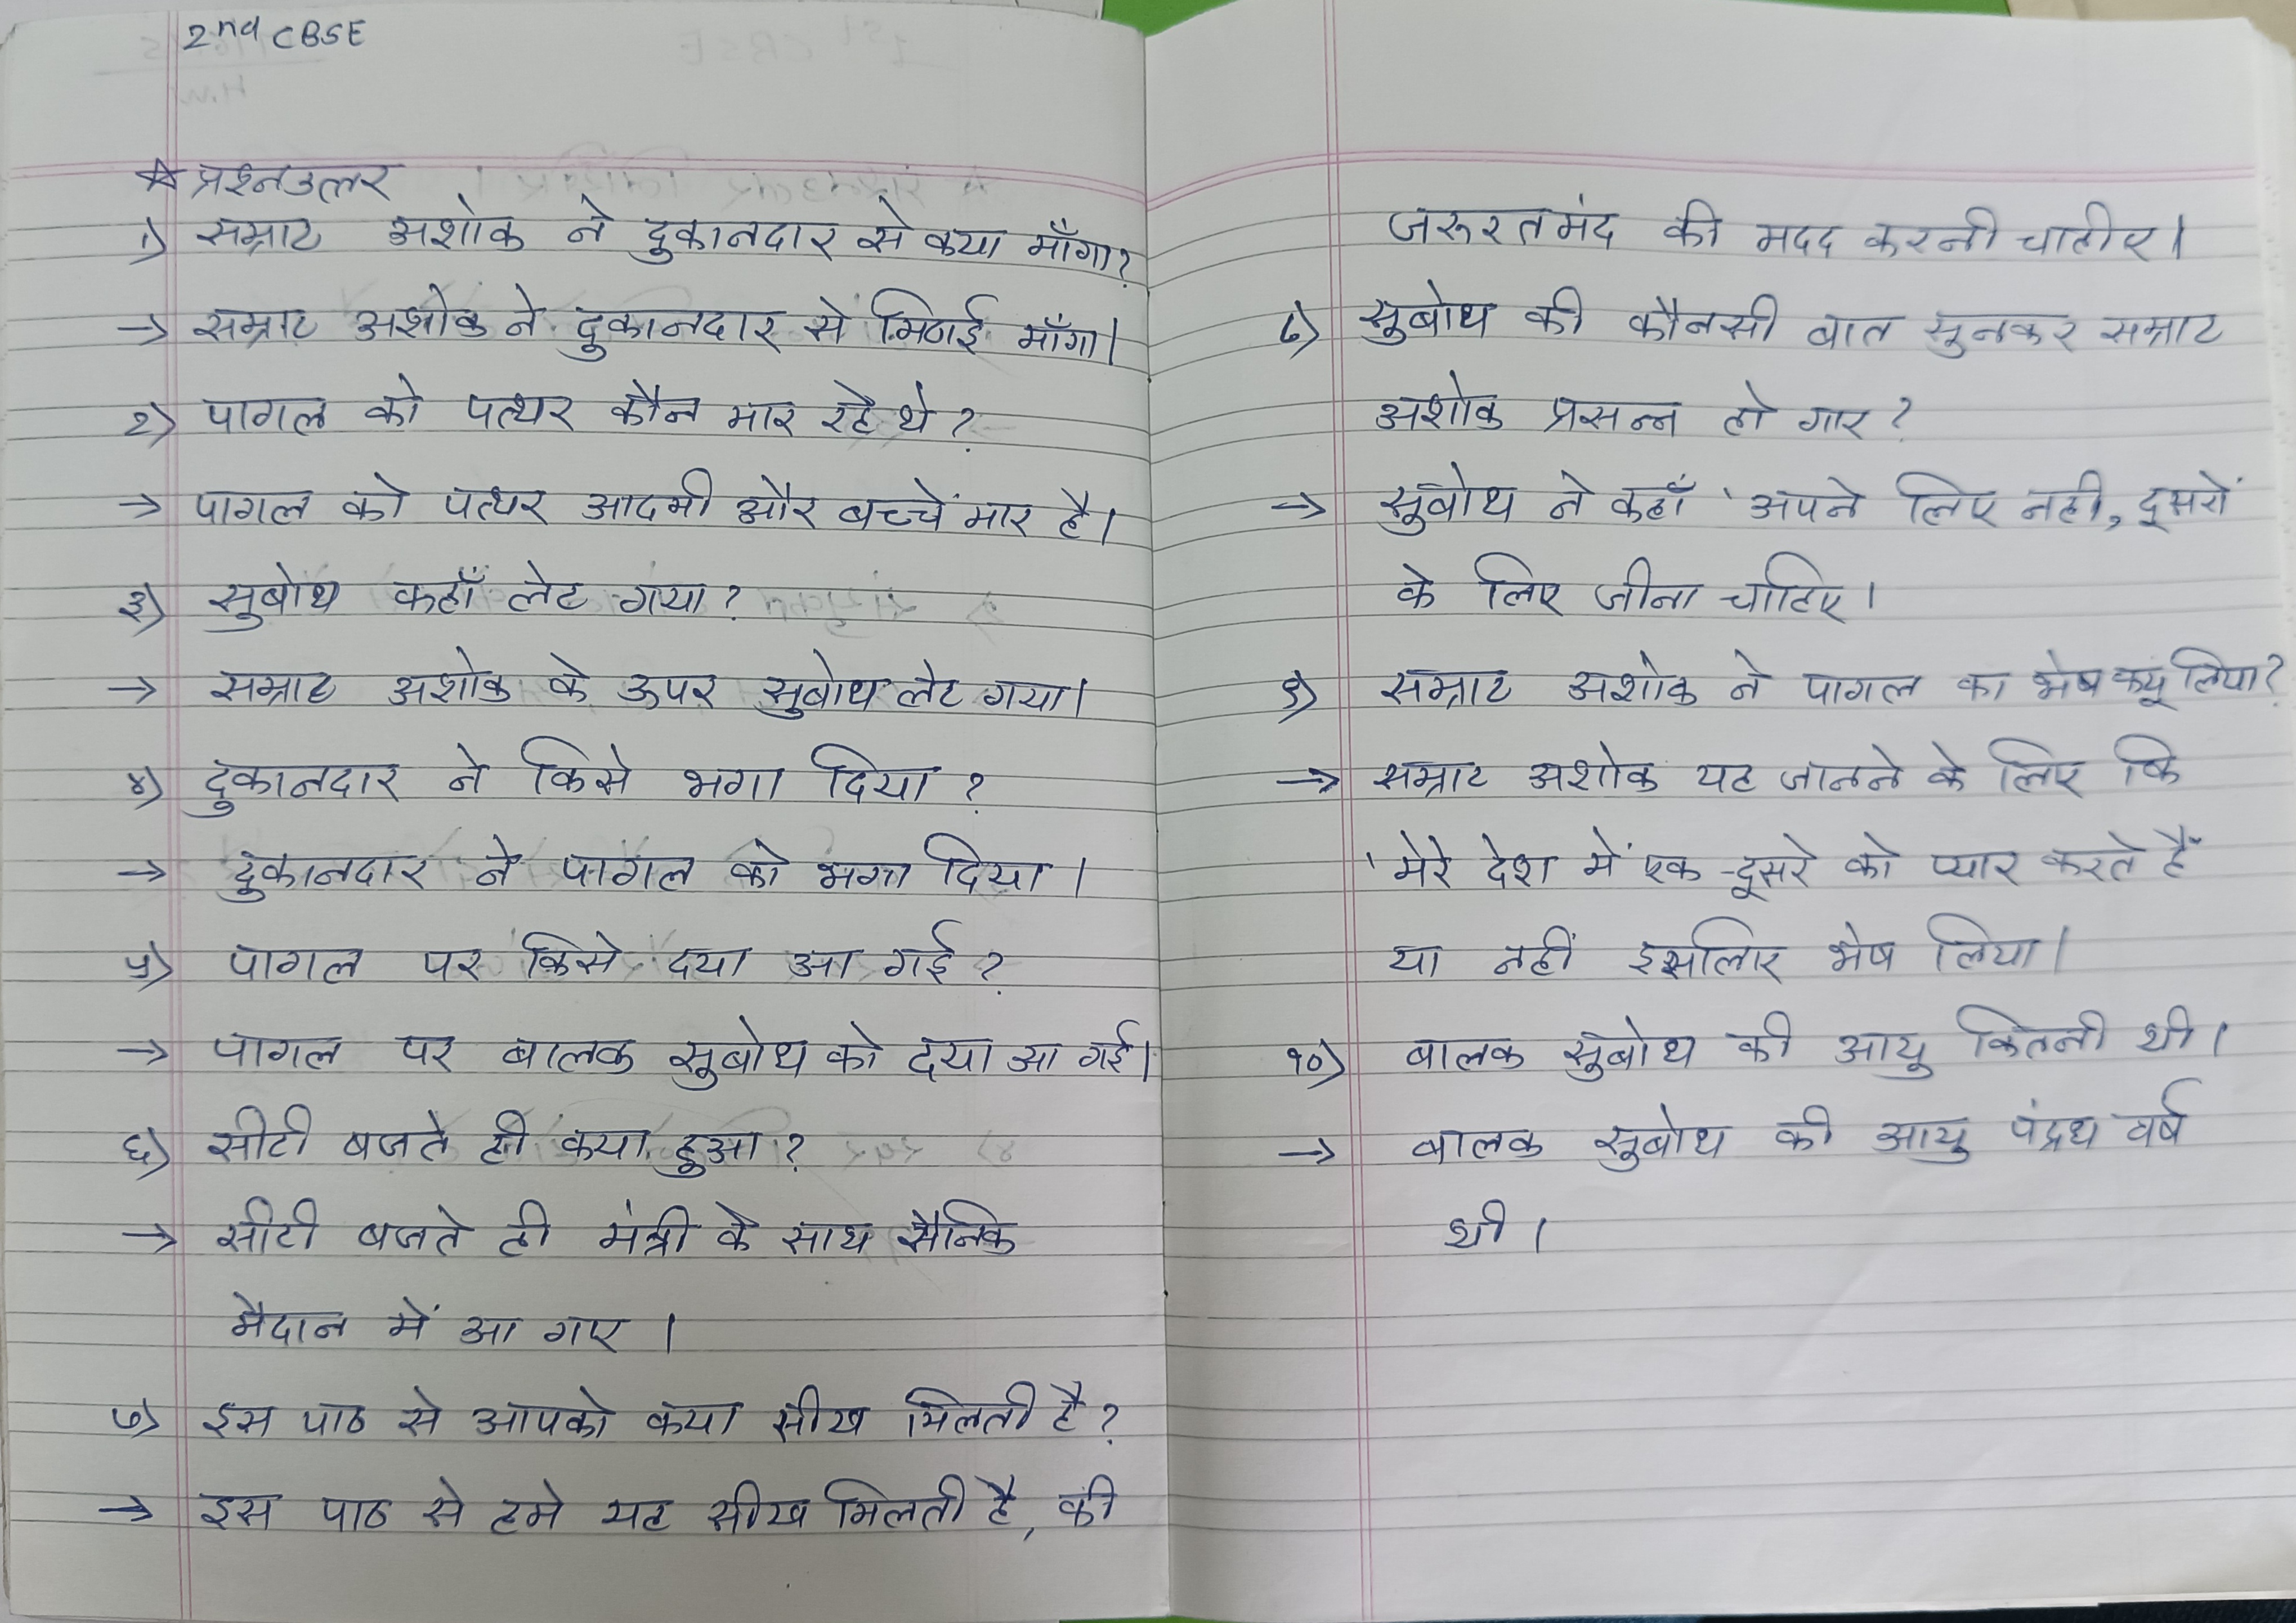 2nd CBSE
☆ प्रश्नउत्तर
१) सम्राट अशोक ने दुकानदार से क्या माँगा?
→ सम्राट अशोक ने दुकानदार से मिठाई माँगा।
२) पागल को पत्थर कौन मार रहे थे?
→ पागल को पत्थर आदमी और बच्चें मार है।
३) सुबोध कहाँ लेट गया?
→ सम्राट अशोक के ऊपर सुबोध लेट गया।
४) दुकानदार ने किसे भगा दिया?
→ दुकानदार ने पागल को भगा दिया।
५) पागल पर किसे दया आ गई?
→ पागल पर बालक सुबोध को दया आ गई।
६) सीटी बजते ही क्या हुआ?
→ सीटी बजते ही मंत्री के साथ सैनिक
मैदान में आ गए।
७) इस पाठ से आपको क्या सीख मिलती है?
→ इस पाठ से हमे यह सीख मिलती है, की
जरुरतमंद की मदद करनी चाहीए।
८) सुबोध की कौनसी बात सुनकर सम्राट
अशोक प्रसन्न हो गाए?
→ सुबोध ने कहाँ 'अपने लिए नही, दूसरों
के लिए जीना चाहिए।
९) सम्राट अशोक ने पागल का भेष क्यू लिया?
→ सम्राट अशोक यह जानने के लिए कि
'मेरे देश में एक-दूसरे को प्यार करते हैं
या नहीं इसलिए भेष लिया।
१०) बालक सुबोध की आयु कितनी थी।
→ बालक सुबोध की आयु पंद्रध वर्ष
थी।